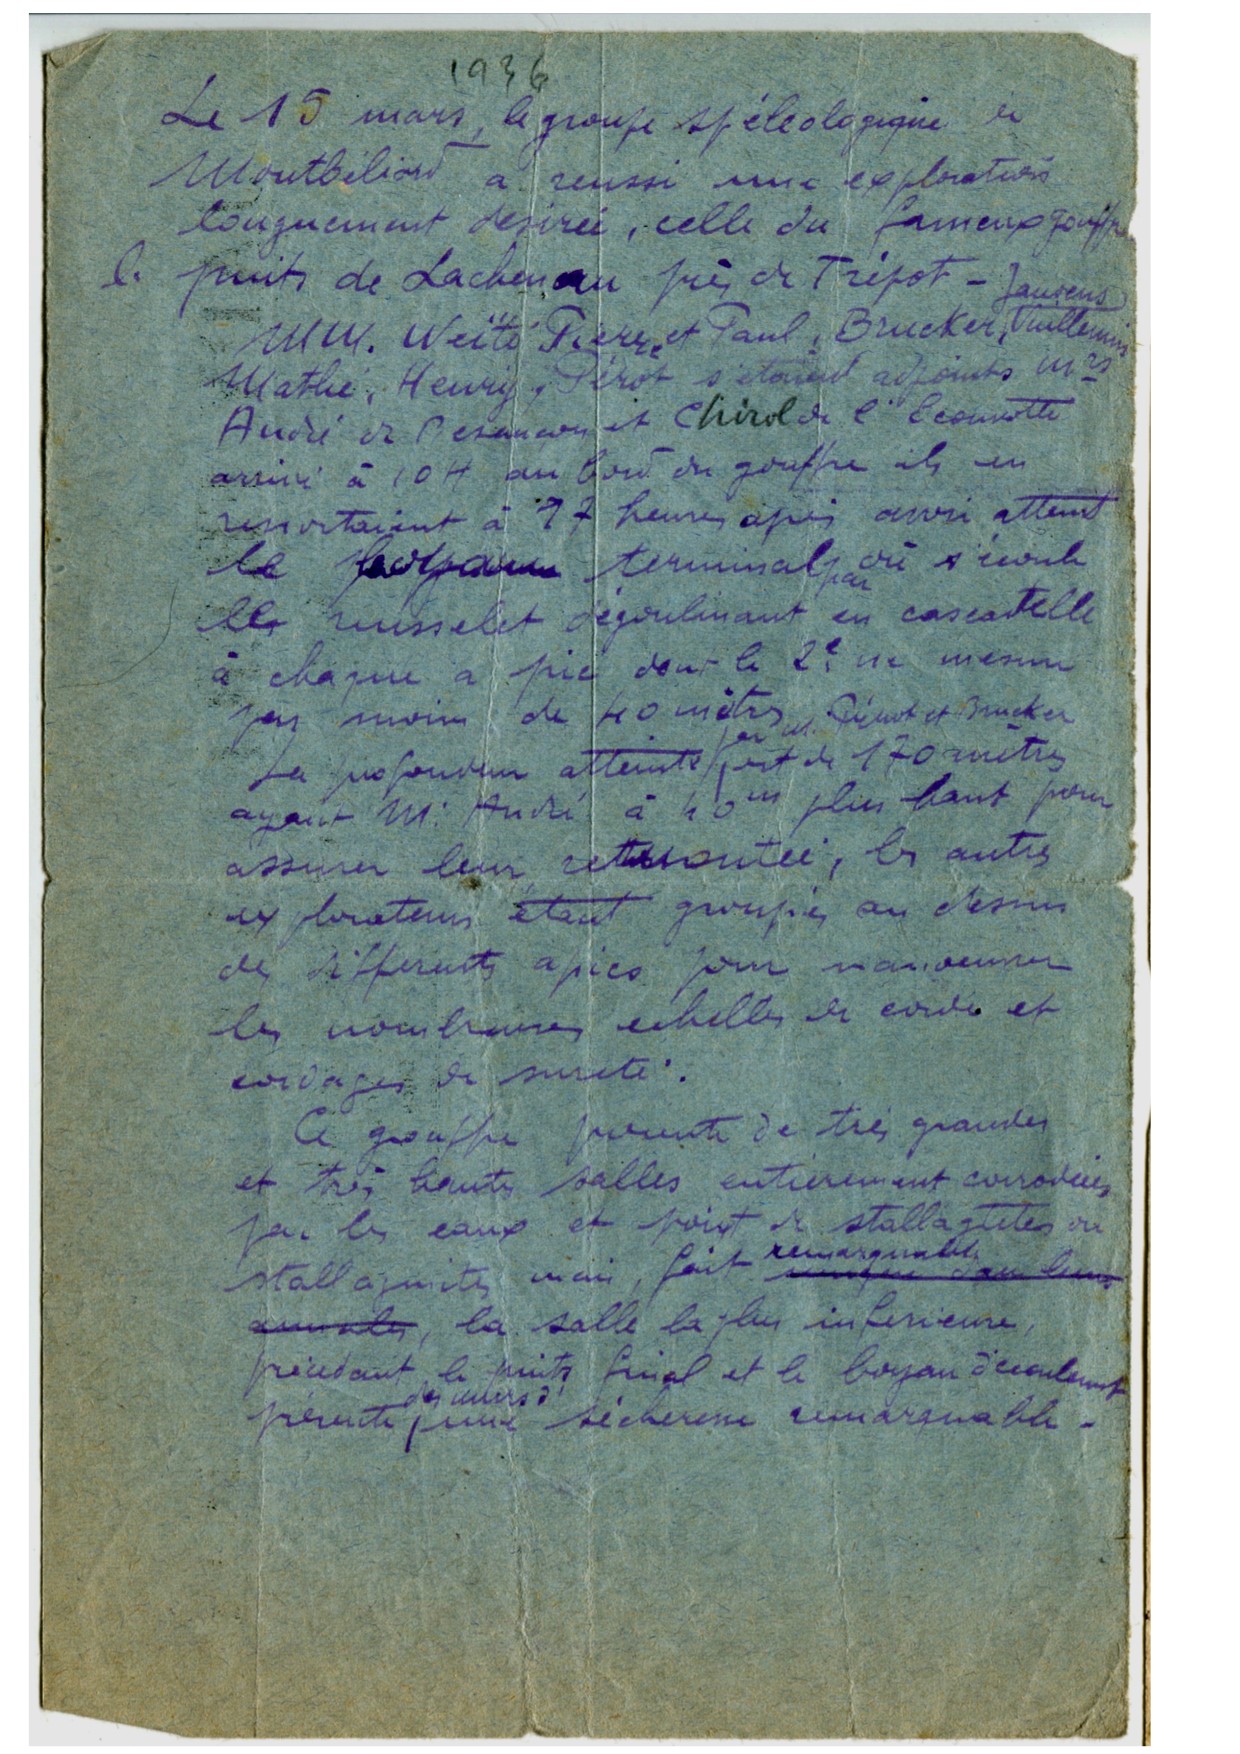 1936
Le 15 mars, le groupe spéléologique de
Montbéliard a reussi une exploration
longuement desirée, celle du fameux gouffre
le puits de Lachenau près de Trépot - Jaurens
MM. Weité Pierre et Paul, Brucker, Vuillemin
Mathé, Henry, Pérot s'etaient adjoints Mrs
André de Besançon et Chirol de l'Ecouvotte
arrivé à 10 H au bord du gouffre ils en
ressortaient à 17 heures après avoir atteint
le terminal par où s'écoule
le ruisselet dégoulinant en cascatelle
à chaque a pic dont le 2e ne mesure
pas moins de 40 mètres
par M. Pérot et Brucker
La profondeur atteinte est de 170 mètres
ayant M. André à 40m plus haut pour
assurer leur remontée, les autres
explorateurs étant groupés au dessus
des differents apics pour manoeuvrer
les nombreuses echelles de corde et
cordages de sureté.
Ce gouffre presente de très grandes
et très hautes salles entièrement corrodées
par les eaux et point de stallagtites ou
remarquable
stallagmites mais, fait unique dans leurs
annales, la salle la plus inferieure,
précédant le puits final et le boyau d'écoulement
des murs d'
présente une sécheresse remarquable -